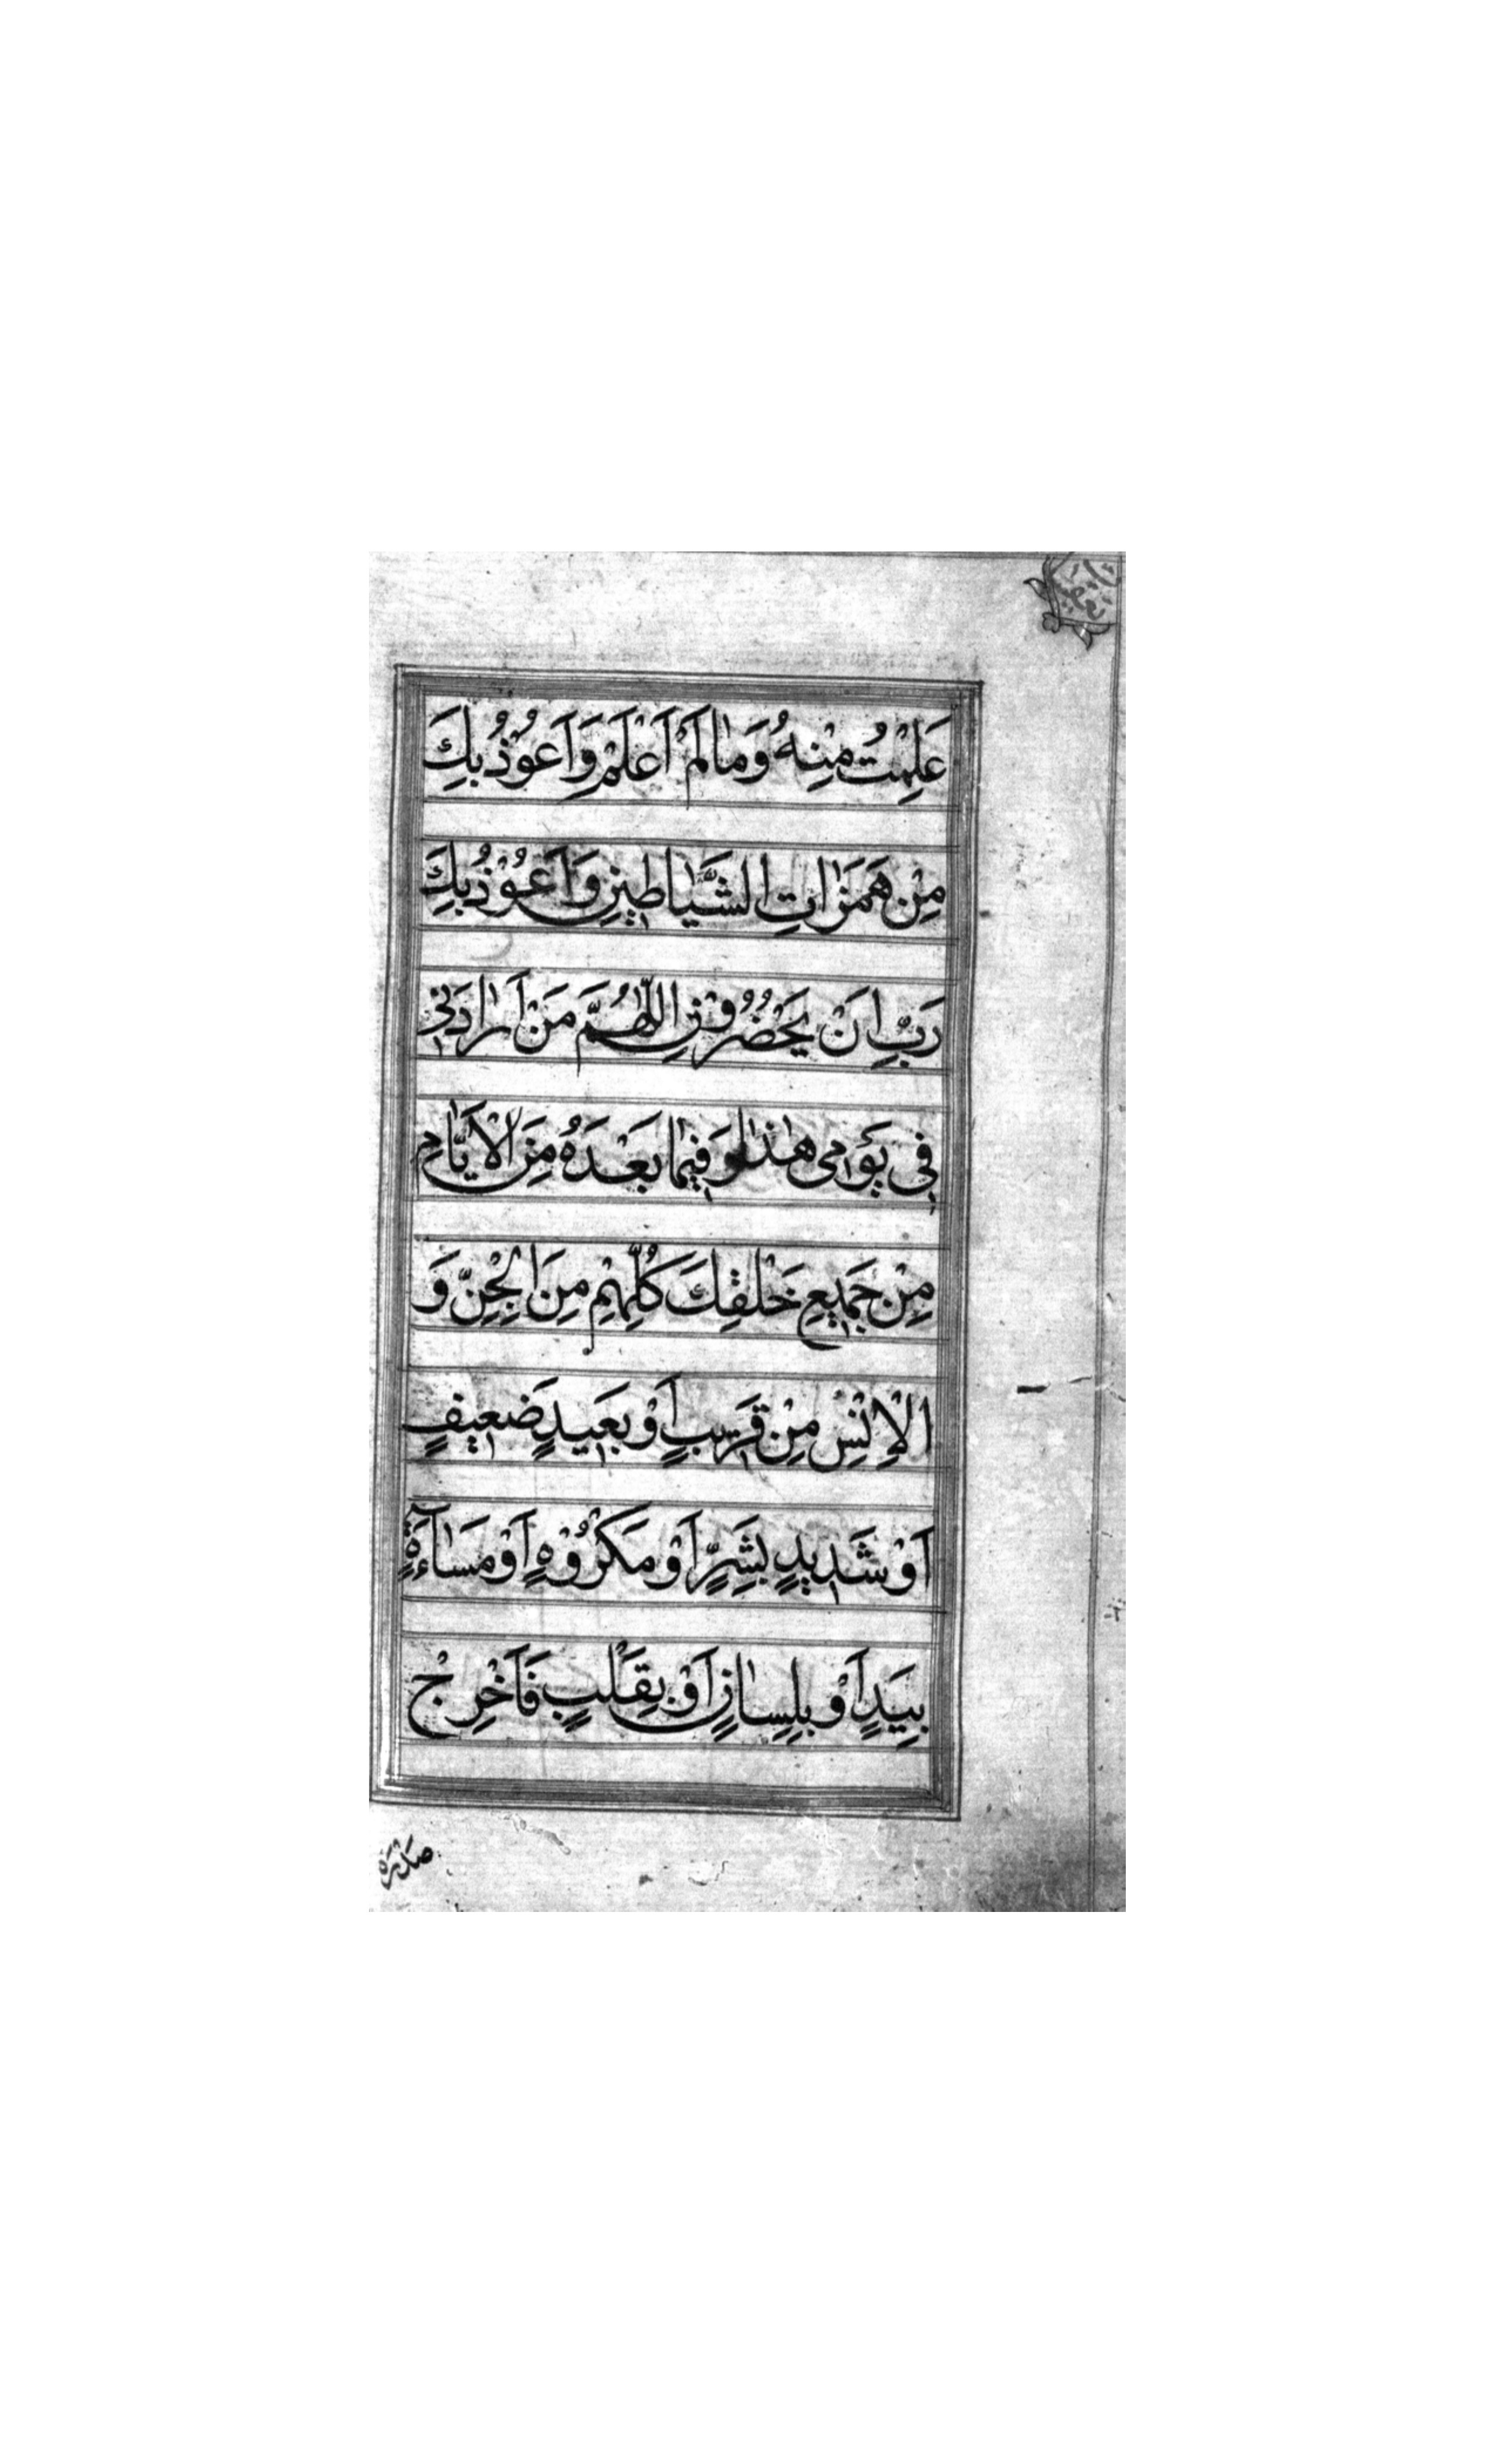 عَلِمْتُ مِنْهُ وَمٰا لَمْ اَعْلَمْ وَاَعُوْذُ بِكَ
مِنْ هَمَزٰاتِ الشَّيٰاطِيْنِ وَاَعُوْذُ بِكَ
رَبِّ اِنَ يَحْضُرُوْنِ اللّٰهُمَّ مَنْ اَرٰادَنِيْ
فِيْ يَوْمِي هٰذٰا وَفِيْمٰا بَعْدَهُ مِنَ الْاَيّٰامِ
مِنْ جَمِيْعِ خَلْقِكَ كُلِّهِمْ مِنَ الْجِنِّ وَ
الْاِنْسِ مِنْ قَرِيْبٍ اَوْ بَعِيْدٍ ضَعِيْفٍ
اَوْ شَدِيْدٍ بِشَرٍّ اَوْ مَكْرُوْهٍ اَوْ مَسٰاۤءَةٍ
بِيَدٍ اَوْ بِلِسٰانٍ اَوْ بِقَلْبٍ فَاَخْرِجْ
صَدْرَهُ